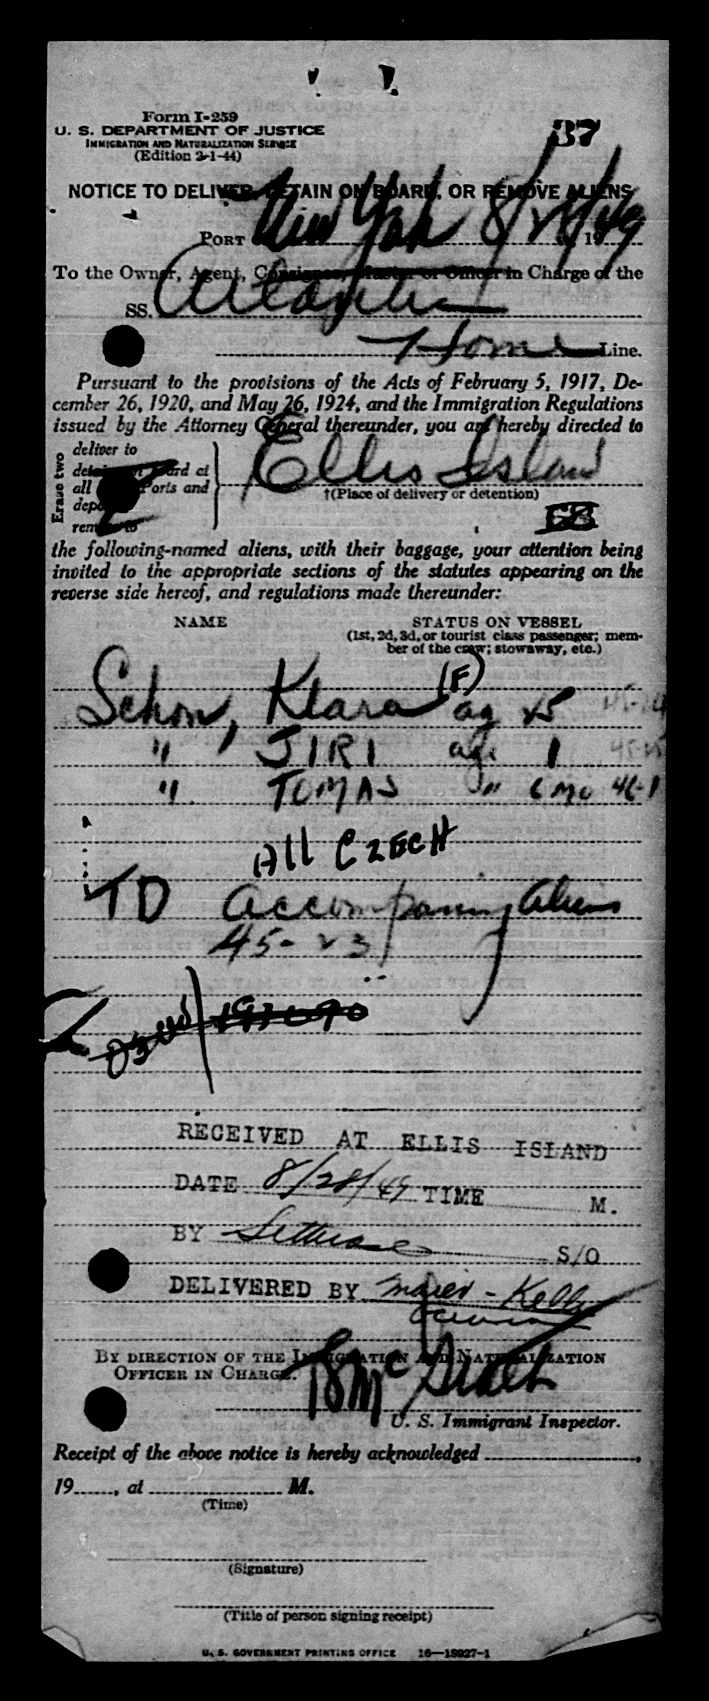 Form I-259
U. S. DEPARTMENT OF JUSTICE
IMMIGRATION AND NATURALIZATION SERVICE
(Edition 2-1-44)
37
NOTICE TO DELIVER, DETAIN ON BOARD, OR REMOVE ALIENS
PORT New York 8/28/49 19
To the Owner, Agent, Consignee, Master or Officer in Charge of the
SS. Atlantic
Home Line.
Pursuant to the provisions of the Acts of February 5, 1917, De-
cember 26, 1920, and May 26, 1924, and the Immigration Regulations
issued by the Attorney General thereunder, you are hereby directed to
Erase two
deliver to
detain on board at
all ports and
Ellis Island
†(Place of delivery or detention)
remove to
the following-named aliens, with their baggage, your attention being
invited to the appropriate sections of the statutes appearing on the
reverse side hereof, and regulations made thereunder:
NAME STATUS ON VESSEL
(1st, 2d, 3d, or tourist class passenger; mem-
ber of the crew; stowaway, etc.)
Schon, Klara (F) ag 25
" JIRI age 1
" TOMAS " 6 mo 46-1
All CZECH
TD Accompaning Aliens
45-23
RECEIVED AT ELLIS ISLAND
DATE 8/28/49 TIME M.
BY S/O
DELIVERED BY Maier - Kelly
BY DIRECTION OF THE IMMIGRATION AND NATURALIZATION
OFFICER IN CHARGE.
U. S. Immigrant Inspector.
Receipt of the above notice is hereby acknowledged
19 , at M.
(Time)
(Signature)
(Title of person signing receipt)
U. S. GOVERNMENT PRINTING OFFICE 16—18927-1